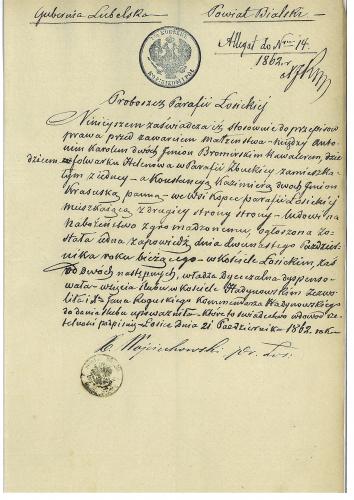 Gubernia Lubelska Powiat Bialski
Allegat do Nru 14.
1862 r
Proboszcz Parafii Łosickiej
Niniejszem zaświadcza iż, stosownie do przepisów
prawa przed zawarciem Małżeństwa między Anto-
nim Karolem dwóch Imion Bromirskim Kawalerem, dzie
dzicem folwarku Helenowa w Parafii zamieszka-
łym z jednej – a Konstancyą Kazimierą dwóch Imion
Krasuską panną – we Wsi Kopce parafii Łosickiej
mieszkającą z drugiej strony – ludowi na
nabożeństwo zgromadzonemu, ogłoszona zo-
stała jedna zapowiedź dnia dwunastego Paździer-
nika roku bieżącego – w Kościele Łosickim, zaś
od dwóch następnych, władza Dyecezalna dyspenso-
wała – wzięcia ślubu w Kościele Hadynowskim zezwo-
liła Jana Rogulskiego Kommendarza Hadynowskiego
do dania ślubu upoważniła – które to świadectwo dowod rze-
telności podpisuję – Łosice dnia 21 Października 1862 roku
Wojciechowski